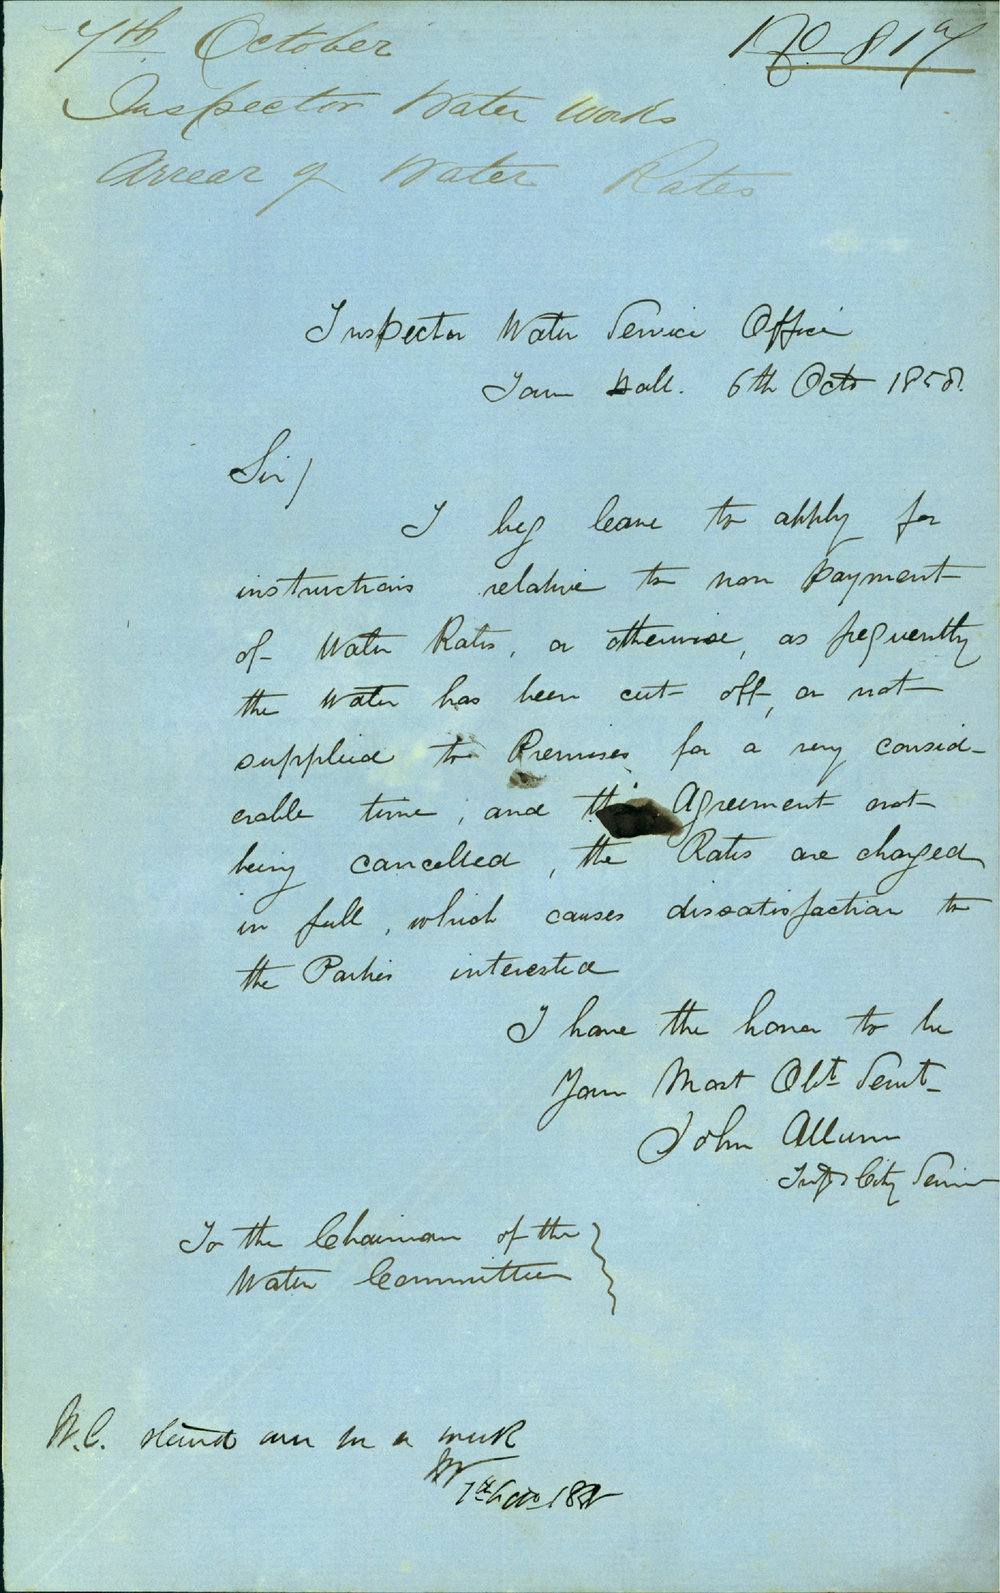 7th October
No 817
Inspector Water Works
Arrear of Water Rates
Inspector Water Service Office
Town Hall. 6th Octr 1858.
Sir/
I beg leave to apply for
instructions relative to non payment
of Water Rates, or otherwise, as frequently
the Water has been cut off, or not
supplied to Premises for a very consid-
erable time, and the Agreement not
being cancelled, the Rates are charged
in full, which causes dissatisfaction to
the Parties interested
I have the honor to be
Your Most Obt Servt
John Allum
Inspr City Service
To the Chairman of the
Water Committee
W.C. stand over for a week
7th